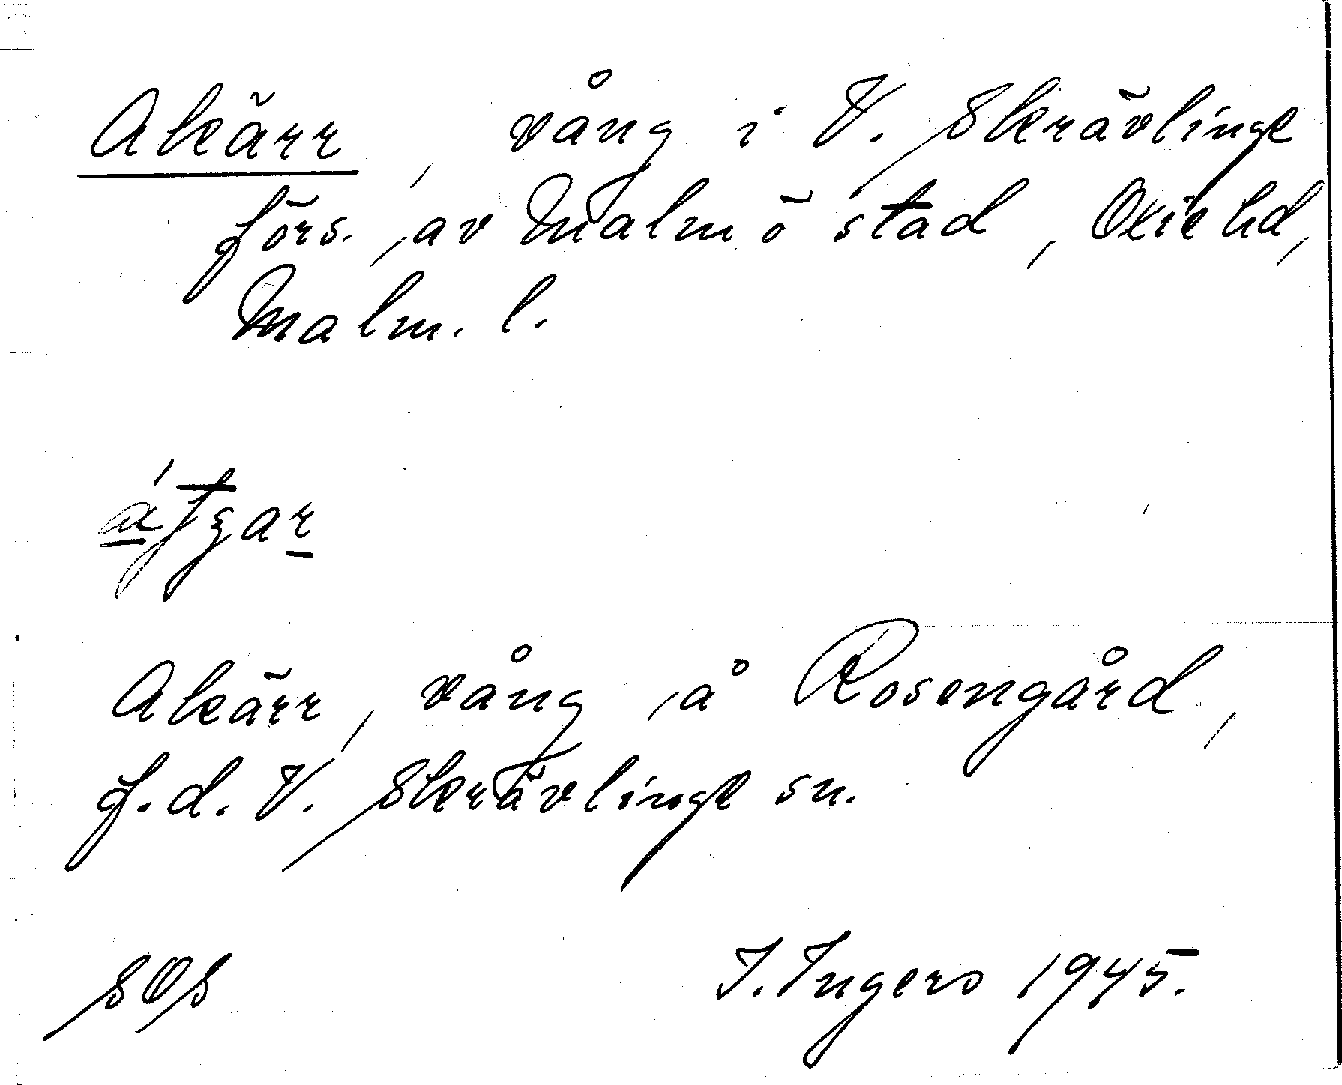 Akärr, vång i V. Skrävlinge
förs. av Malmö stad, Oxie hd,
Malm. l.
Akärr, vång å Rosengård,
f.d. V. Skrävlinge sn.
SOS I. Ingers 1945.